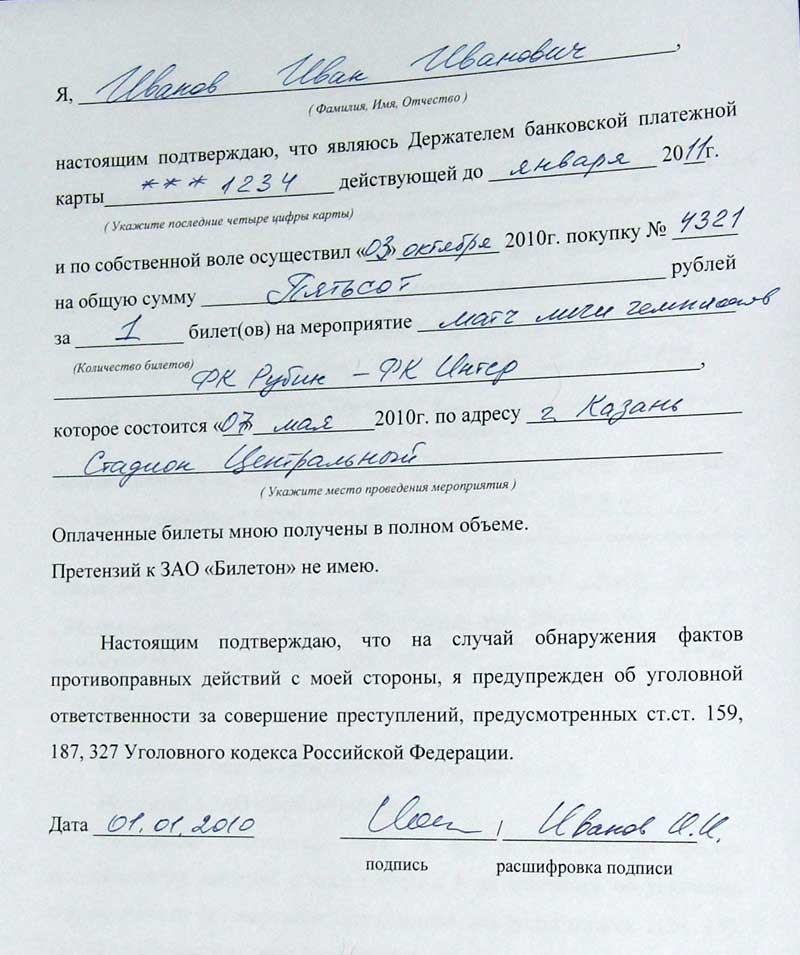 Я, Иванов Иван Иванович,
( Фамилия, Имя, Отчество )
настоящим подтверждаю, что являюсь Держателем банковской платежной
карты *** 1234 действующей до января 2011г.
( Укажите последние четыре цифры карты)
и по собственной воле осуществил «03» октября 2010г. покупку № 4321
на общую сумму Пятьсот рублей
за 1 билет(ов) на мероприятие матч лиги чемпионов
(Количество билетов)
ФК Рубин – ФК Интер,
которое состоится «07» мая 2010г. по адресу г. Казань
Стадион Центральный
( Укажите место проведения мероприятия )
Оплаченные билеты мною получены в полном объеме.
Претензий к ЗАО «Билетон» не имею.
Настоящим подтверждаю, что на случай обнаружения фактов
противоправных действий с моей стороны, я предупрежден об уголовной
ответственности за совершение преступлений, предусмотренных ст.ст. 159,
187, 327 Уголовного кодекса Российской Федерации.
Дата 01.01.2010 / Иванов И.И.
подпись расшифровка подписи